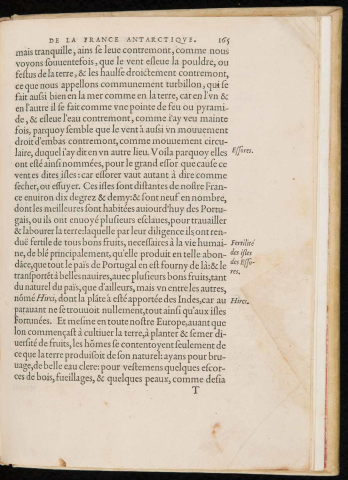 DE LA FRANCE ANTARCTIQVE. 165
mais tranquille, ains se leue contremont, comme nous
voyons souuentefois, que le vent esleue la pouldre, ou
festus de la terre, & les haulse droictement contremont,
ce que nous appellons communement turbillon, qui se
fait aussi bien en la mer comme en la terre, car en l'vn &
en l'autre il se fait comme vne pointe de feu ou pyrami-
de, & esleue l'eau contremont, comme i'ay veu mainte
fois, parquoy semble que le vent à aussi vn mouuement
droit d'embas contremont, comme mouuement circu-
laire, duquel i'ay dit en vn autre lieu. Voila parquoy elles
Essores.
ont esté ainsi nommées, pour le grand essor que cause ce
ventes dites isles: car essorer vaut autant à dire comme
secher, ou essuyer. Ces isles sont distantes de nostre Fran-
ce enuiron dix degrez & demy: & sont neuf en nombre,
dont les meilleures sont habitées auiourd'huy des Portu-
gais, ou ils ont enuoyé plusieurs esclaues, pour trauailler
& labourer la terre: laquelle par leur diligence ils ont ren-
du fertile de tous bons fruits, necessaires à la vie humai-
Fertilité
des isles
des Esso-
res.
ne, de blé principalement, qu'elle produit en telle abon-
dãce, que tout le païs de Portugal en est fourny de là: & le
transportẽt à belles nauires, auec plusieurs bons fruits, tant
du naturel du païs, que d'ailleurs, mais vn entre les autres,
Hirci.
nõmé Hirci, dont la plãte à esté apportée des Indes, car au
parauant ne se trouuoit nullement, tout ainsi qu'aux isles
Fortunées. Et mesme en toute nostre Europe, auant que
lon commençast à cultiuer la terre, à planter & semer di-
uersité de fruits, les hõmes se contentoyent seulement de
ce que la terre produisoit de son naturel: ayans pour bru-
uage, de belle eau clere: pour vestemens quelques escor-
ces de bois, fueillages, & quelques peaux, comme desia
T